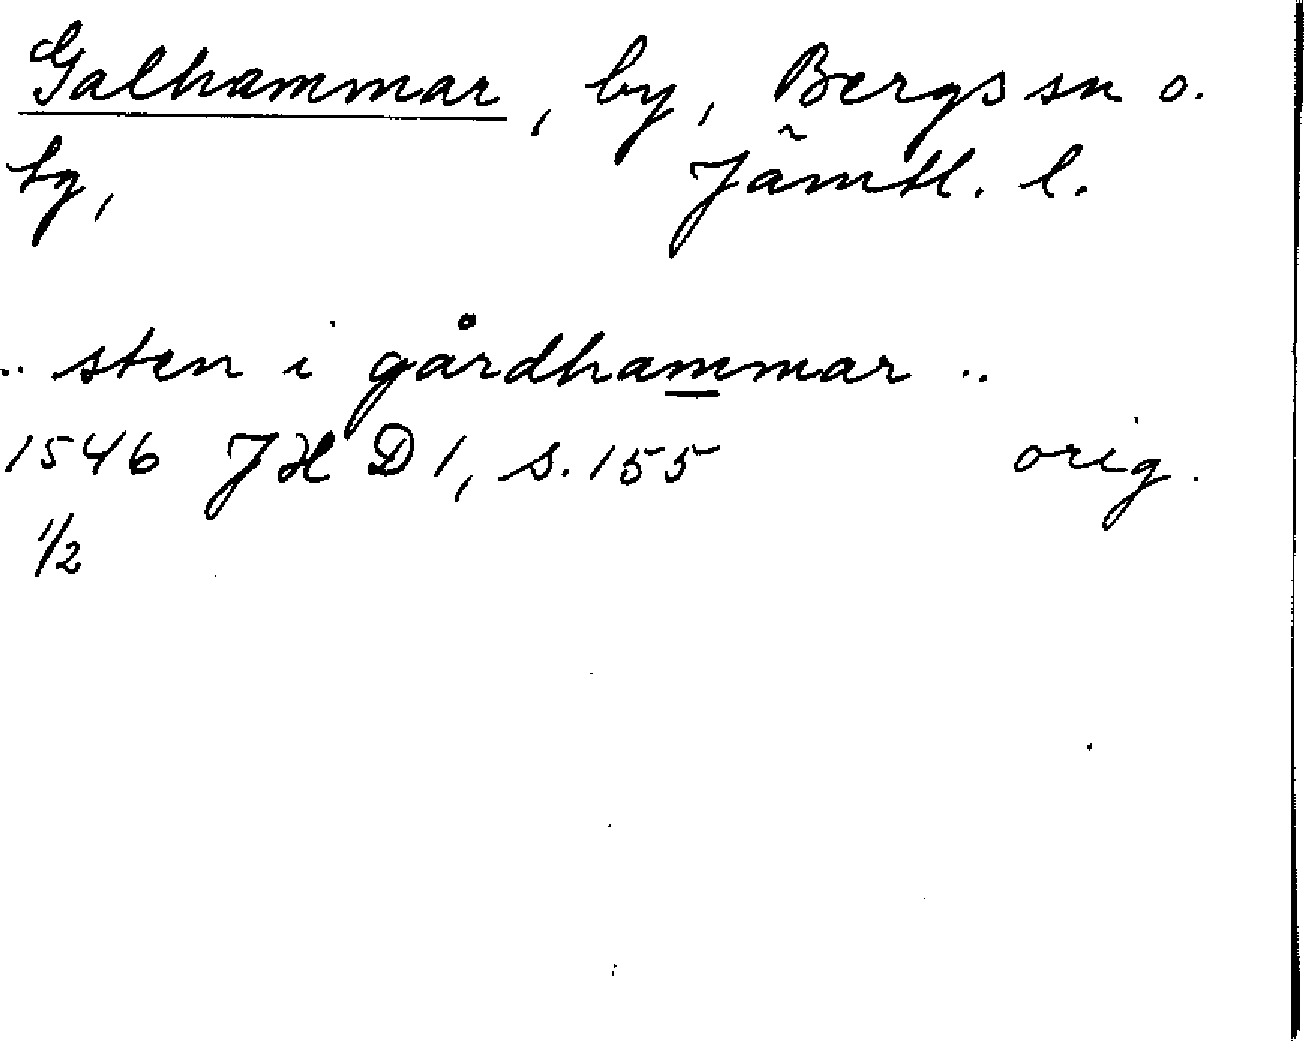 Galhammar, by, Bergs sn o.
tg, Jämtl. l.
.. sten i gårdhammar ..
1546 JH D 1, s. 155 orig.
1/2